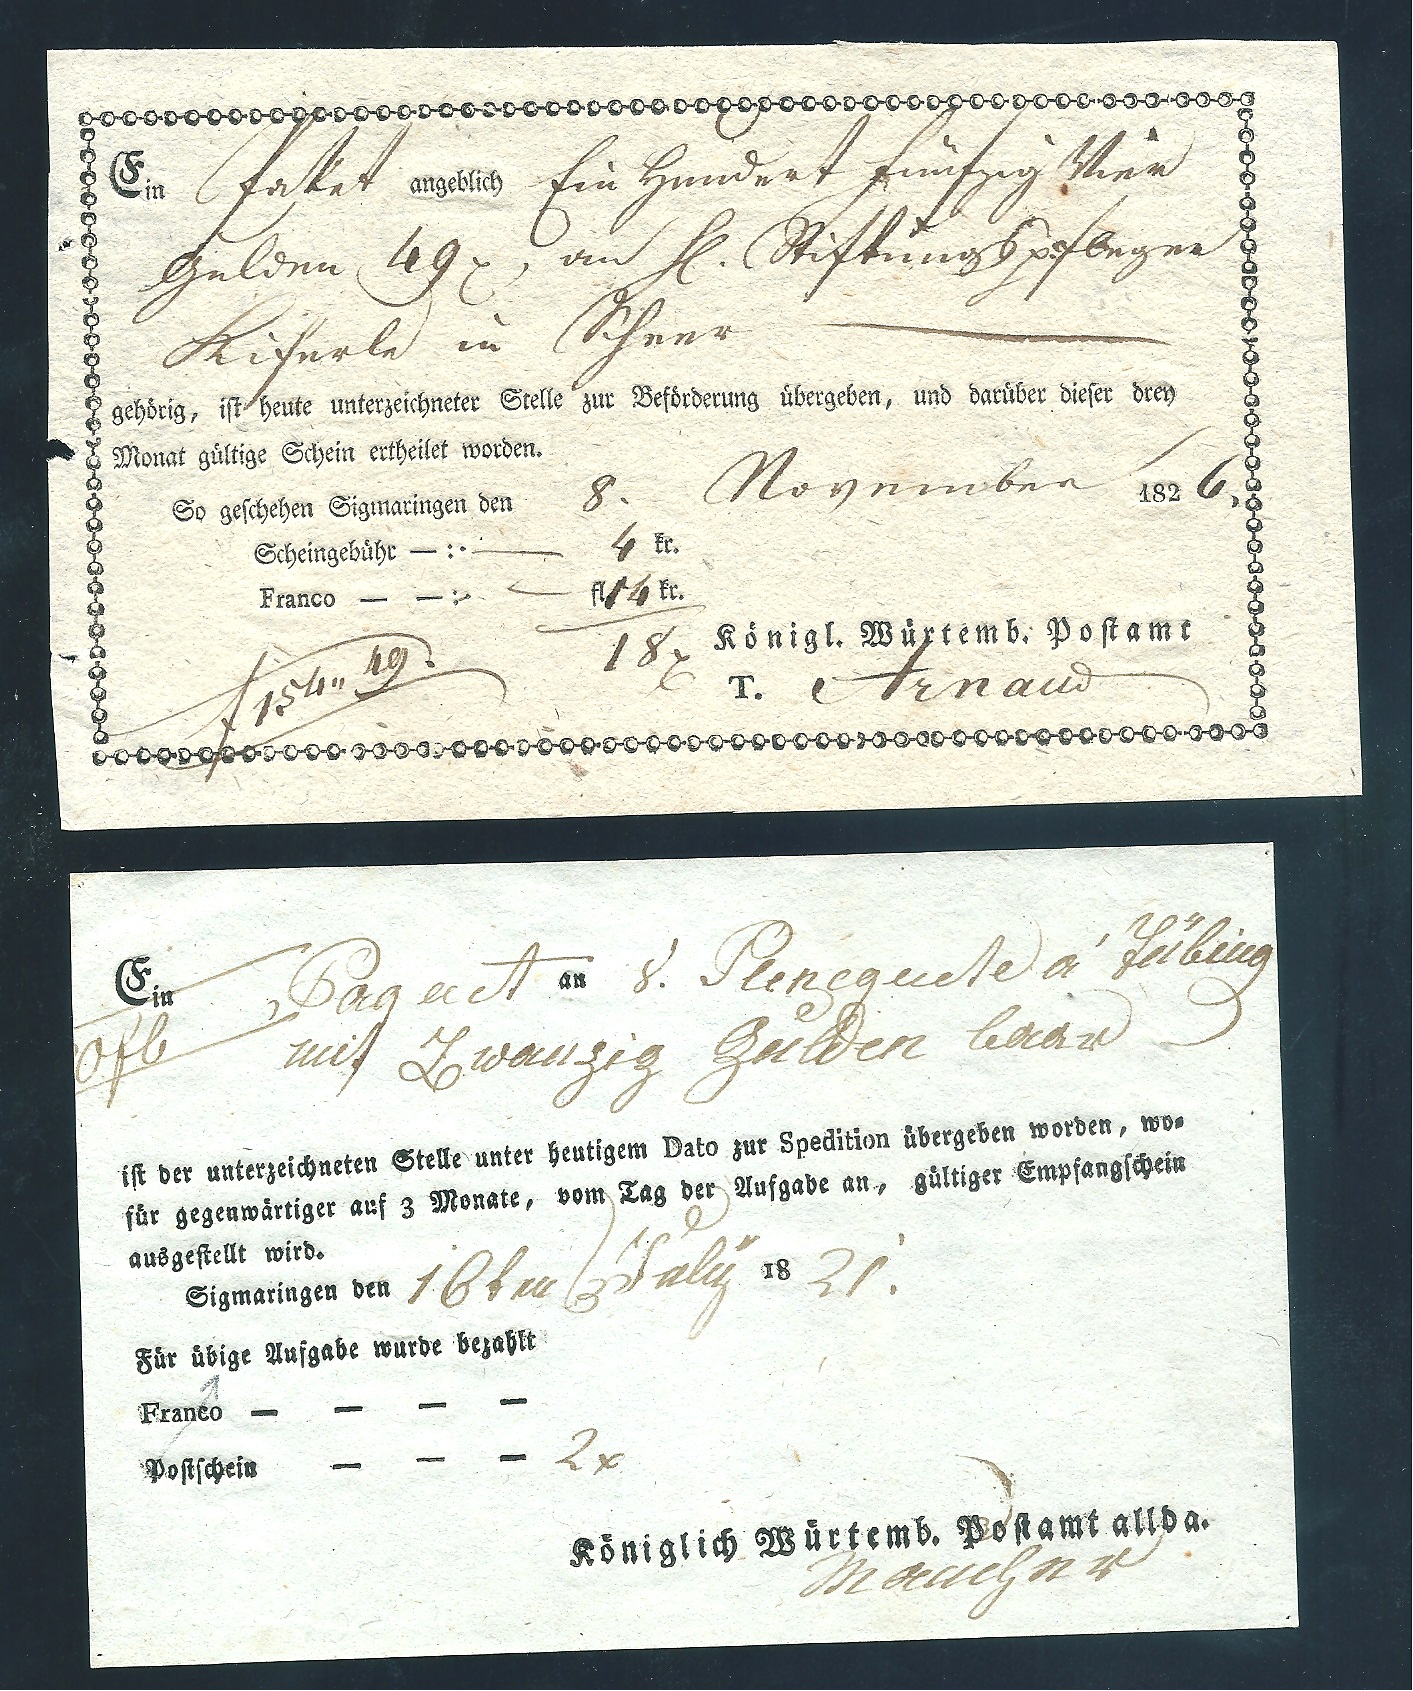 Ein Paket angeblich Ein Hundert fünfzig Vier
Gulden 49 x, an H. Stiftungspfleger
Kiferle in Scheer
gehörig, ist heute unterzeichneter Stelle zur Beförderung übergeben, und darüber dieser drey
Monat gültige Schein ertheilet worden.
So geschehen Sigmaringen den 8. November 1826.
Scheingebühr — : 4 kr.
Franco — — : fl. 14 kr.
18 x
Königl. Würtemb. Postamt
f 154 " 49.
T. Arnaud
Ein Paquet an à Tübing
mit Zwanzig Gulden baar
ist der unterzeichneten Stelle unter heutigem Dato zur Spedition übergeben worden, wo-
für gegenwärtiger auf 3 Monate, vom Tag der Aufgabe an, gültiger Empfangschein
ausgestellt wird.
Sigmaringen den 16ten July 1821.
Für übige Aufgabe wurde bezahlt
Franco — — — —
Postschein — — — 2 x
Königlich Würtemb. Postamt allda.